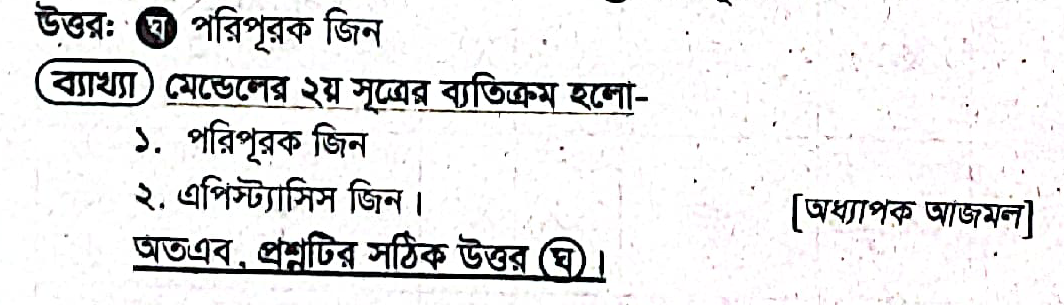 উত্তর: ঘ পরিপূরক জিন
ব্যাখ্যা মেন্ডেলের ২য় সূত্রের ব্যতিক্রম হলো-
১. পরিপূরক জিন
২. এপিস্ট্যাসিস জিন।
[অধ্যাপক আজমল]
অতএব, প্রশ্নটির সঠিক উত্তর ঘ।